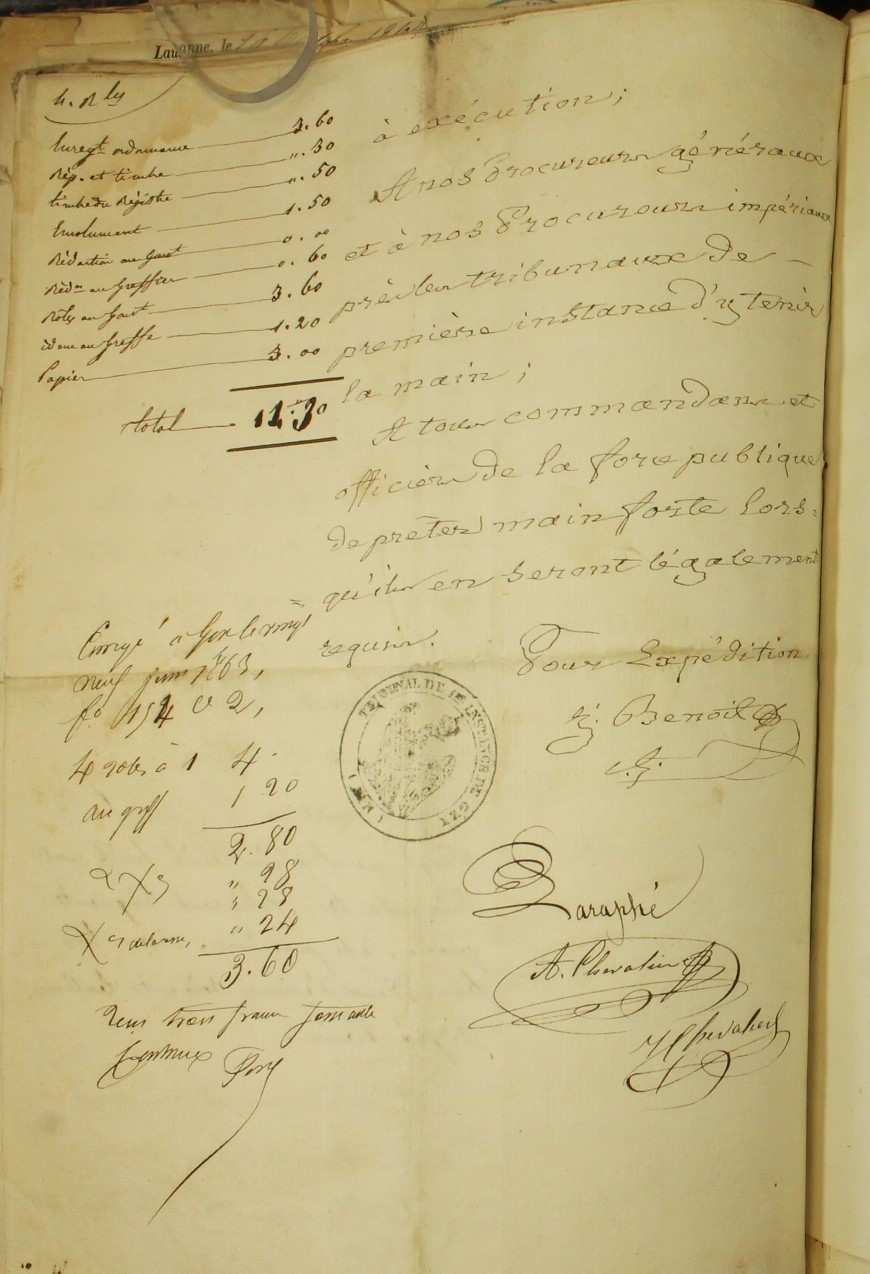 Lausanne, le
4. Rles
Enregt ordonnance 3.60
Rép. et timbre ". 30
timbre du Registre ". 50
Emolument 1.50
Rédaction au 0.00
Rédon au Greffier 0.60
Rôles au 3.60
idem au Greffe 1.20
Papier 3.00
total
à exécution;
A nos Procureurs généraux
et à nos Procureurs impériaux
près les tribunaux de
première instance d'y tenir
la main;
A tous commandans et
officiers de la force publique
de prêter main forte lors=
qu'ils en seront légalement
requis.
Pour Expédition
Benoit
Enregé à Gex le vingt
neuf juin 1863,
fo 154 Vo 2,
4 roles à 1 4.
au greff 1 20
2.80
" 28
" 28
" 24
3.60
Reçu trois francs soixante
centimes
TRIBUNAL DE 1RE INSTANCE DE GEX
(AIN)
Paraphé
A. Chevalier
Chevalier